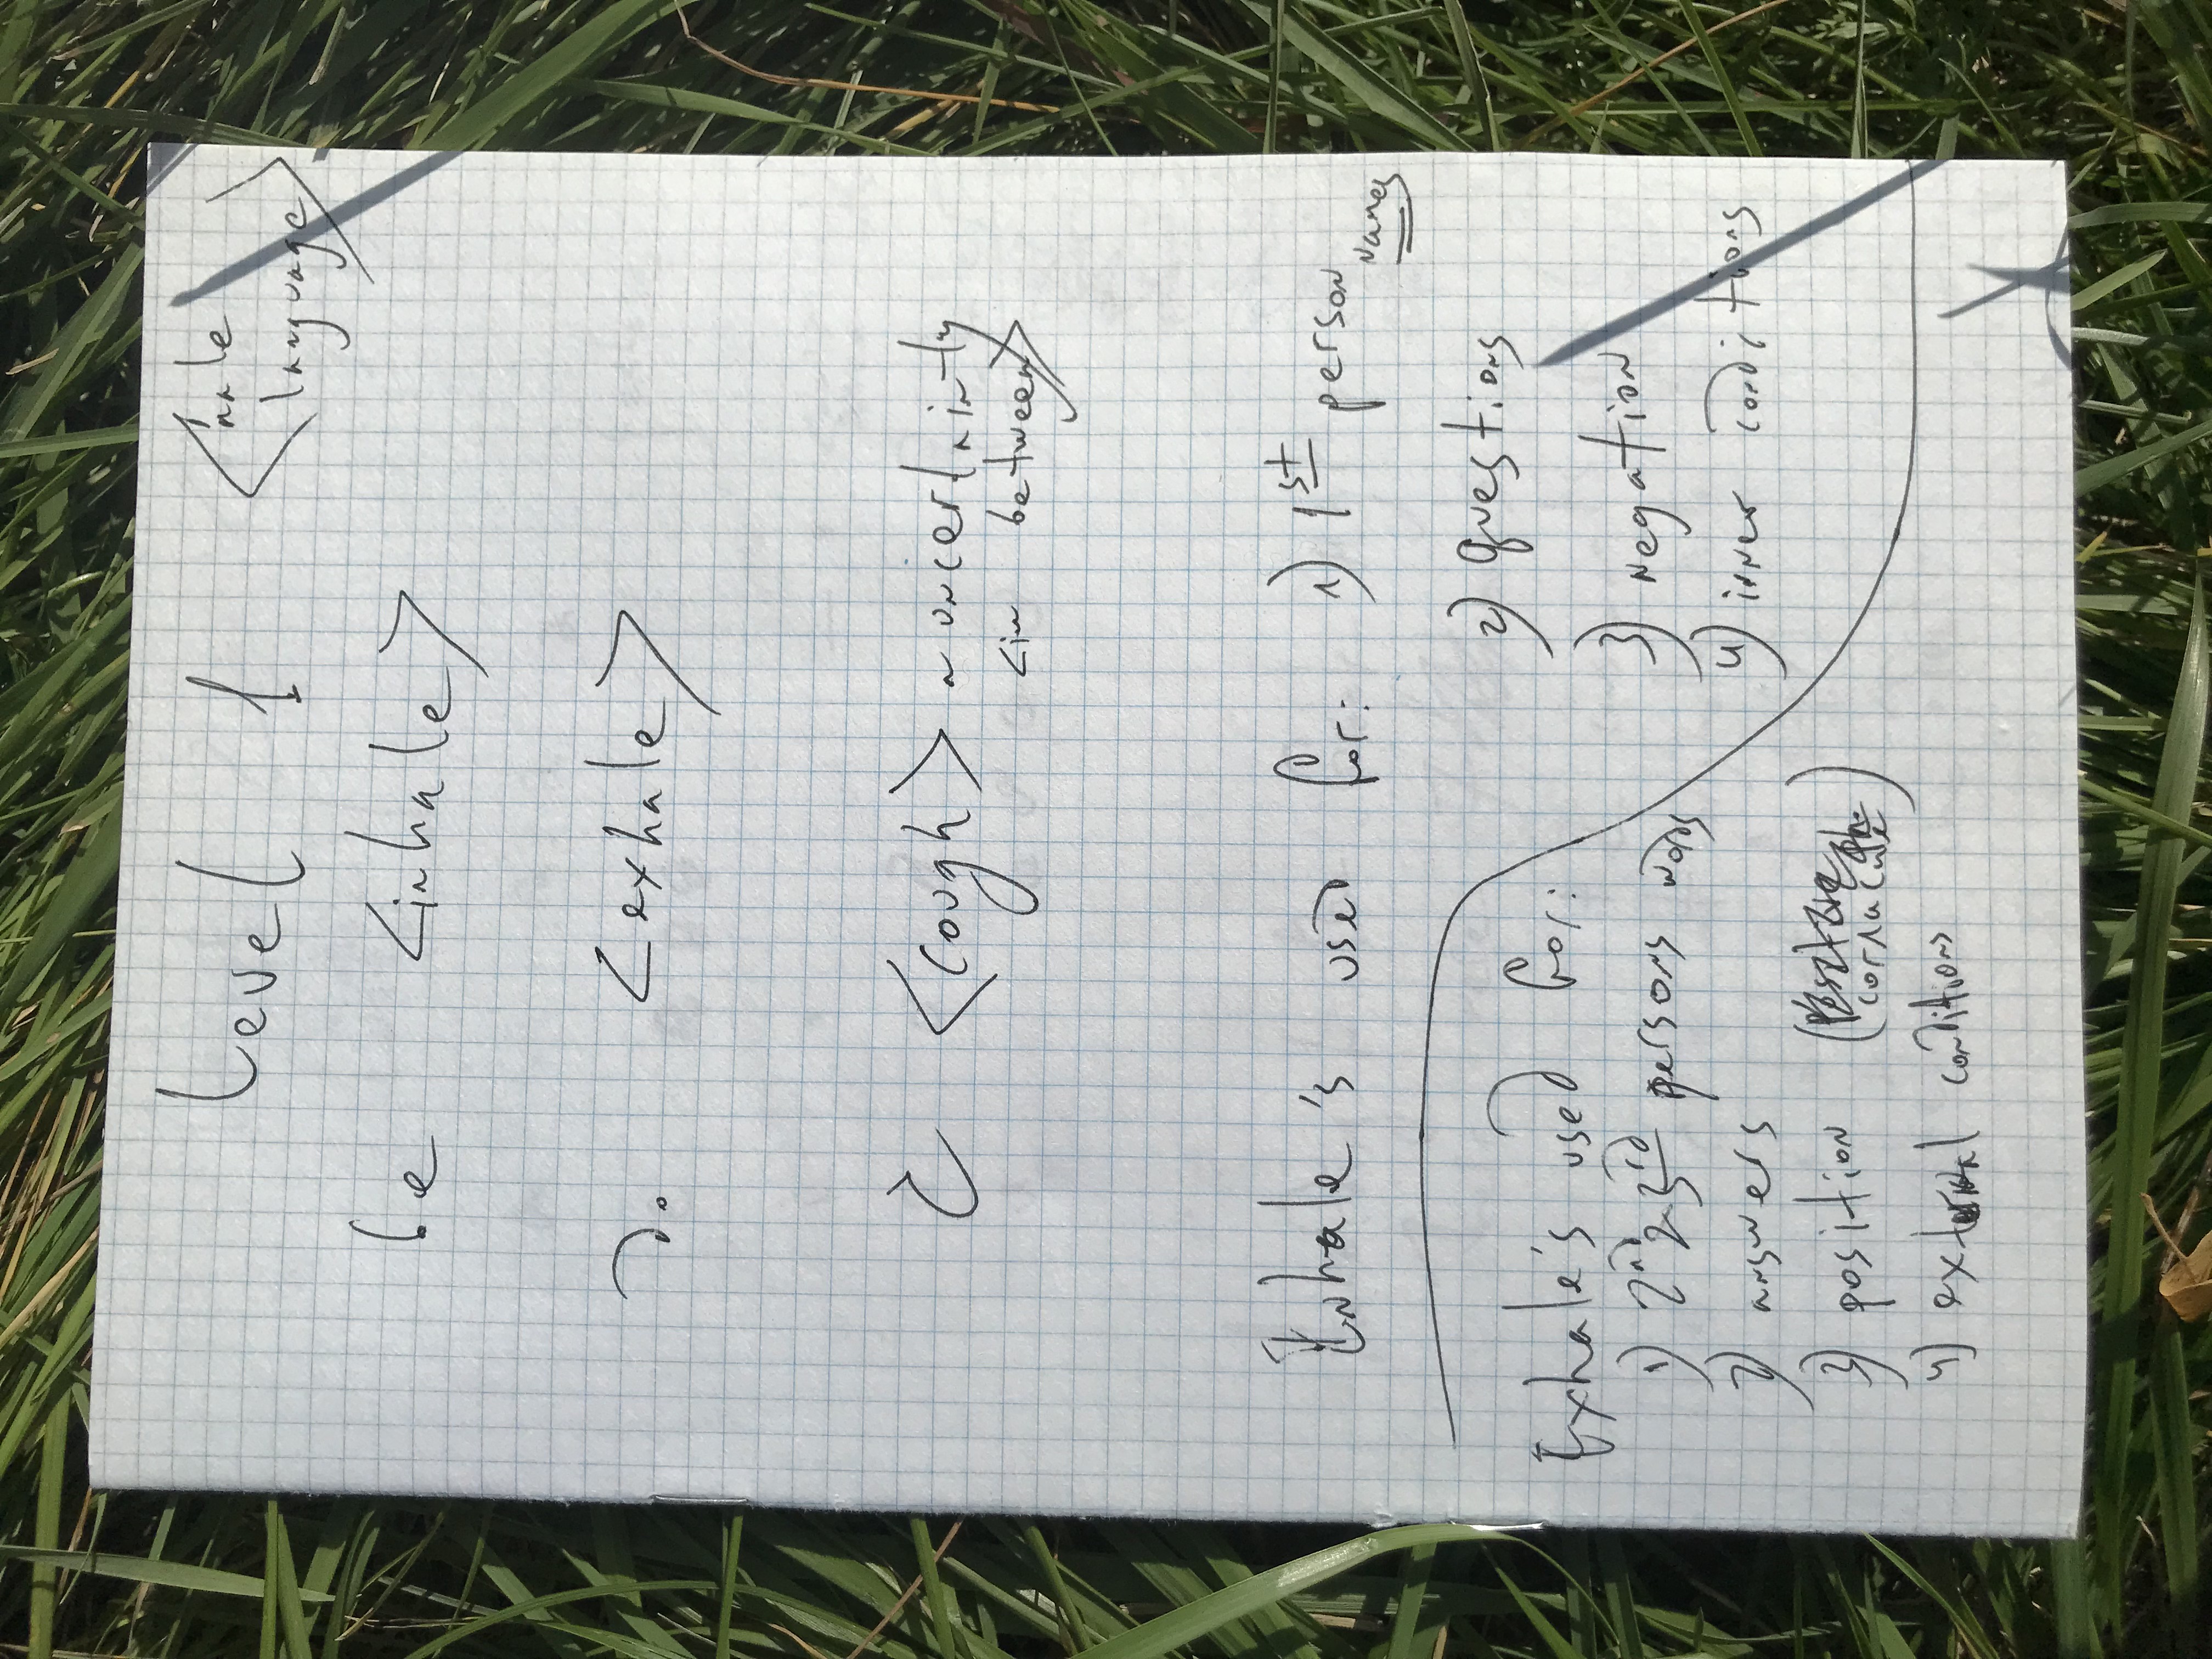 Level 1
<male
language>
be <inhale>
do <exhale>
<cough> ~ uncertainty
<in between>
Inhale's used for: 1) 1st person
names
2) questions
3) negation
4) inner conditions
Exhale's used for:
1) 2nd 2 3rd persons words
2) answers
3) position
4) external conditions